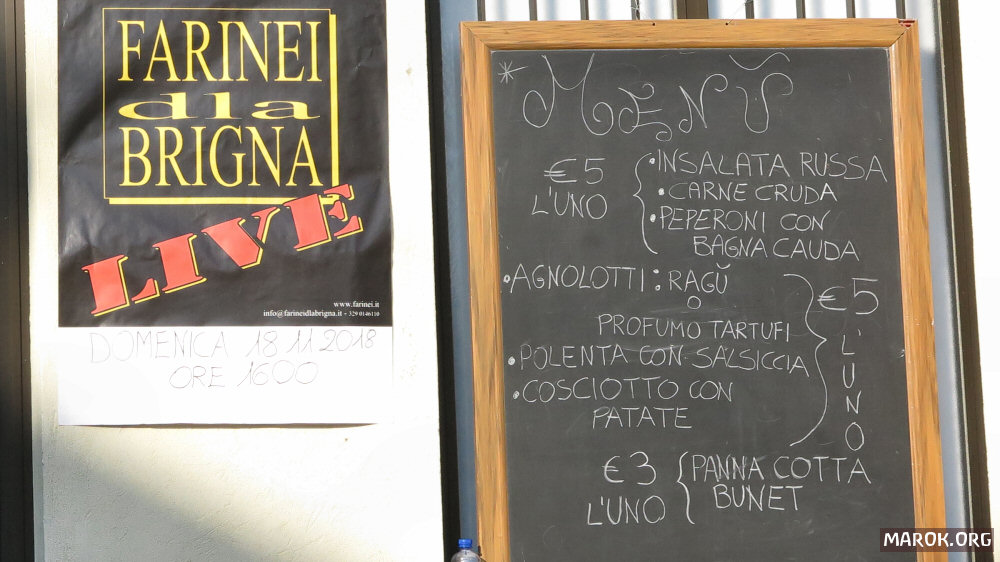 FARINEI
dla
BRIGNA
LIVE
www.farinei.it
info@farineidlabrigna.it - 329 0146110
DOMENICA 18 11 2018
ORE 1600
* MENŬ
€5
L'UNO
• INSALATA RUSSA
• CARNE CRUDA
• PEPERONI CON
BAGNA CAUDA
• AGNOLOTTI: RAGŬ
O
PROFUMO TARTUFI
• POLENTA CON SALSICCIA
• COSCIOTTO CON
PATATE
€5
L'UNO
€3
L'UNO
PANNA COTTA
BUNET
MAROK.ORG